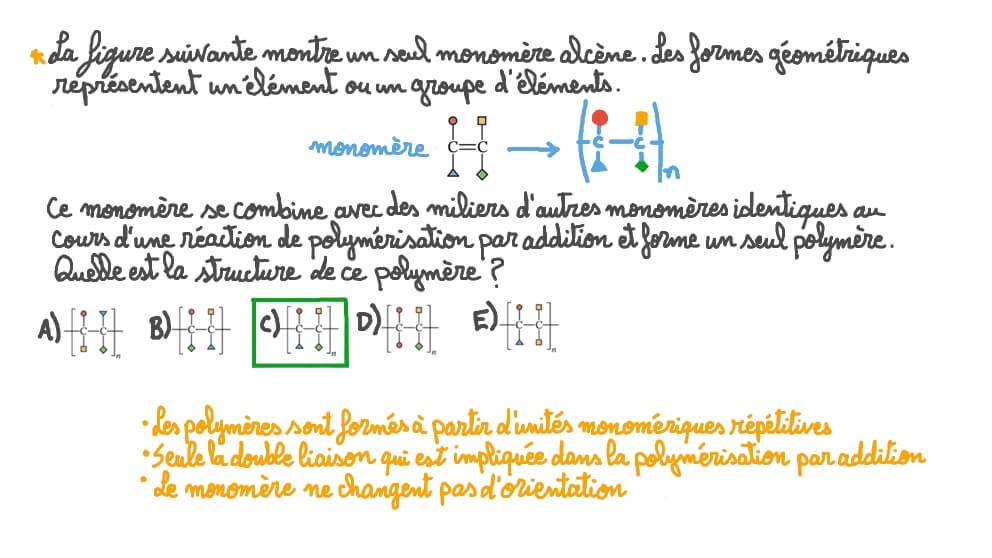 * La figure suivante montre un seul monomère alcène. Les formes géométriques
représentent un élément ou un groupe d'éléments.
monomère C=C → (C-C)n
Ce monomère se combine avec des miliers d'autres monomères identiques au
cours d'une réaction de polymérisation par addition et forme un seul polymère.
Quelle est la structure de ce polymère ?
A) [C-C]n B) [C-C]n C) [C-C]n D) [C-C]n E) [C-C]n
• Les polymères sont formés à partir d'unités monomériques répétitives
• Seule la double liaison qui est impliquée dans la polymérisation par addition
• Le monomère ne changent pas d'orientation